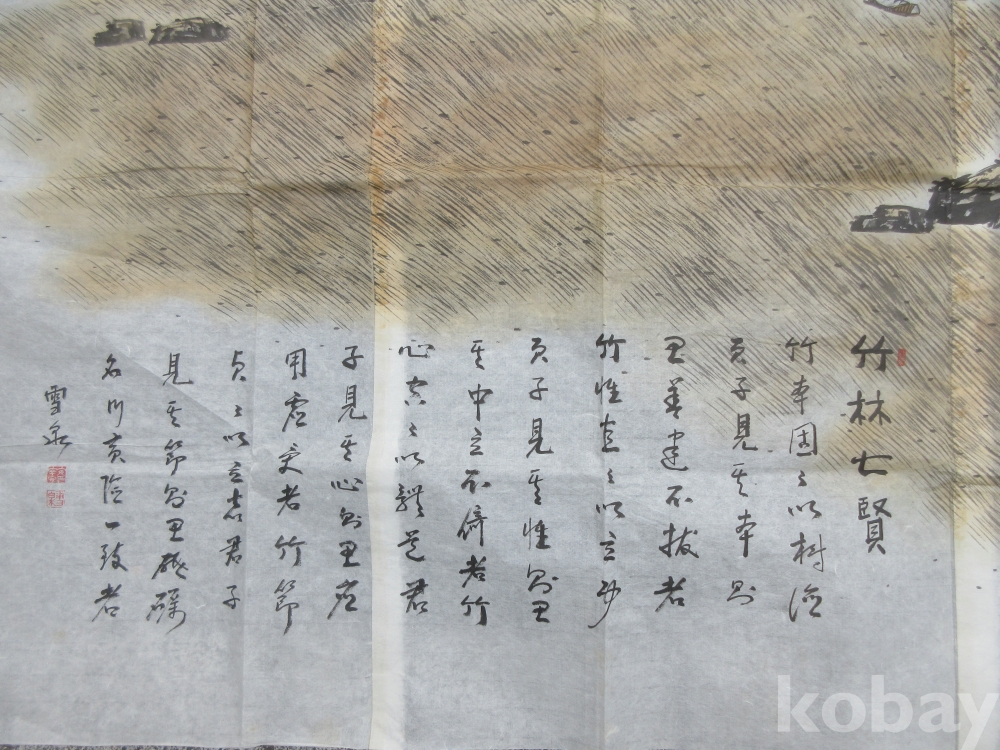 竹林七賢
竹本固々以樹德
君子見其本則
思善建不拔者
竹性直々以立身
君子見其性則思
其中立不倚者竹
心空々以體道君
子見其心則思應
用虛受者竹節
貞々以立志君子
見其節則思砥礪
名行夷險一致者
雪泉
kobay